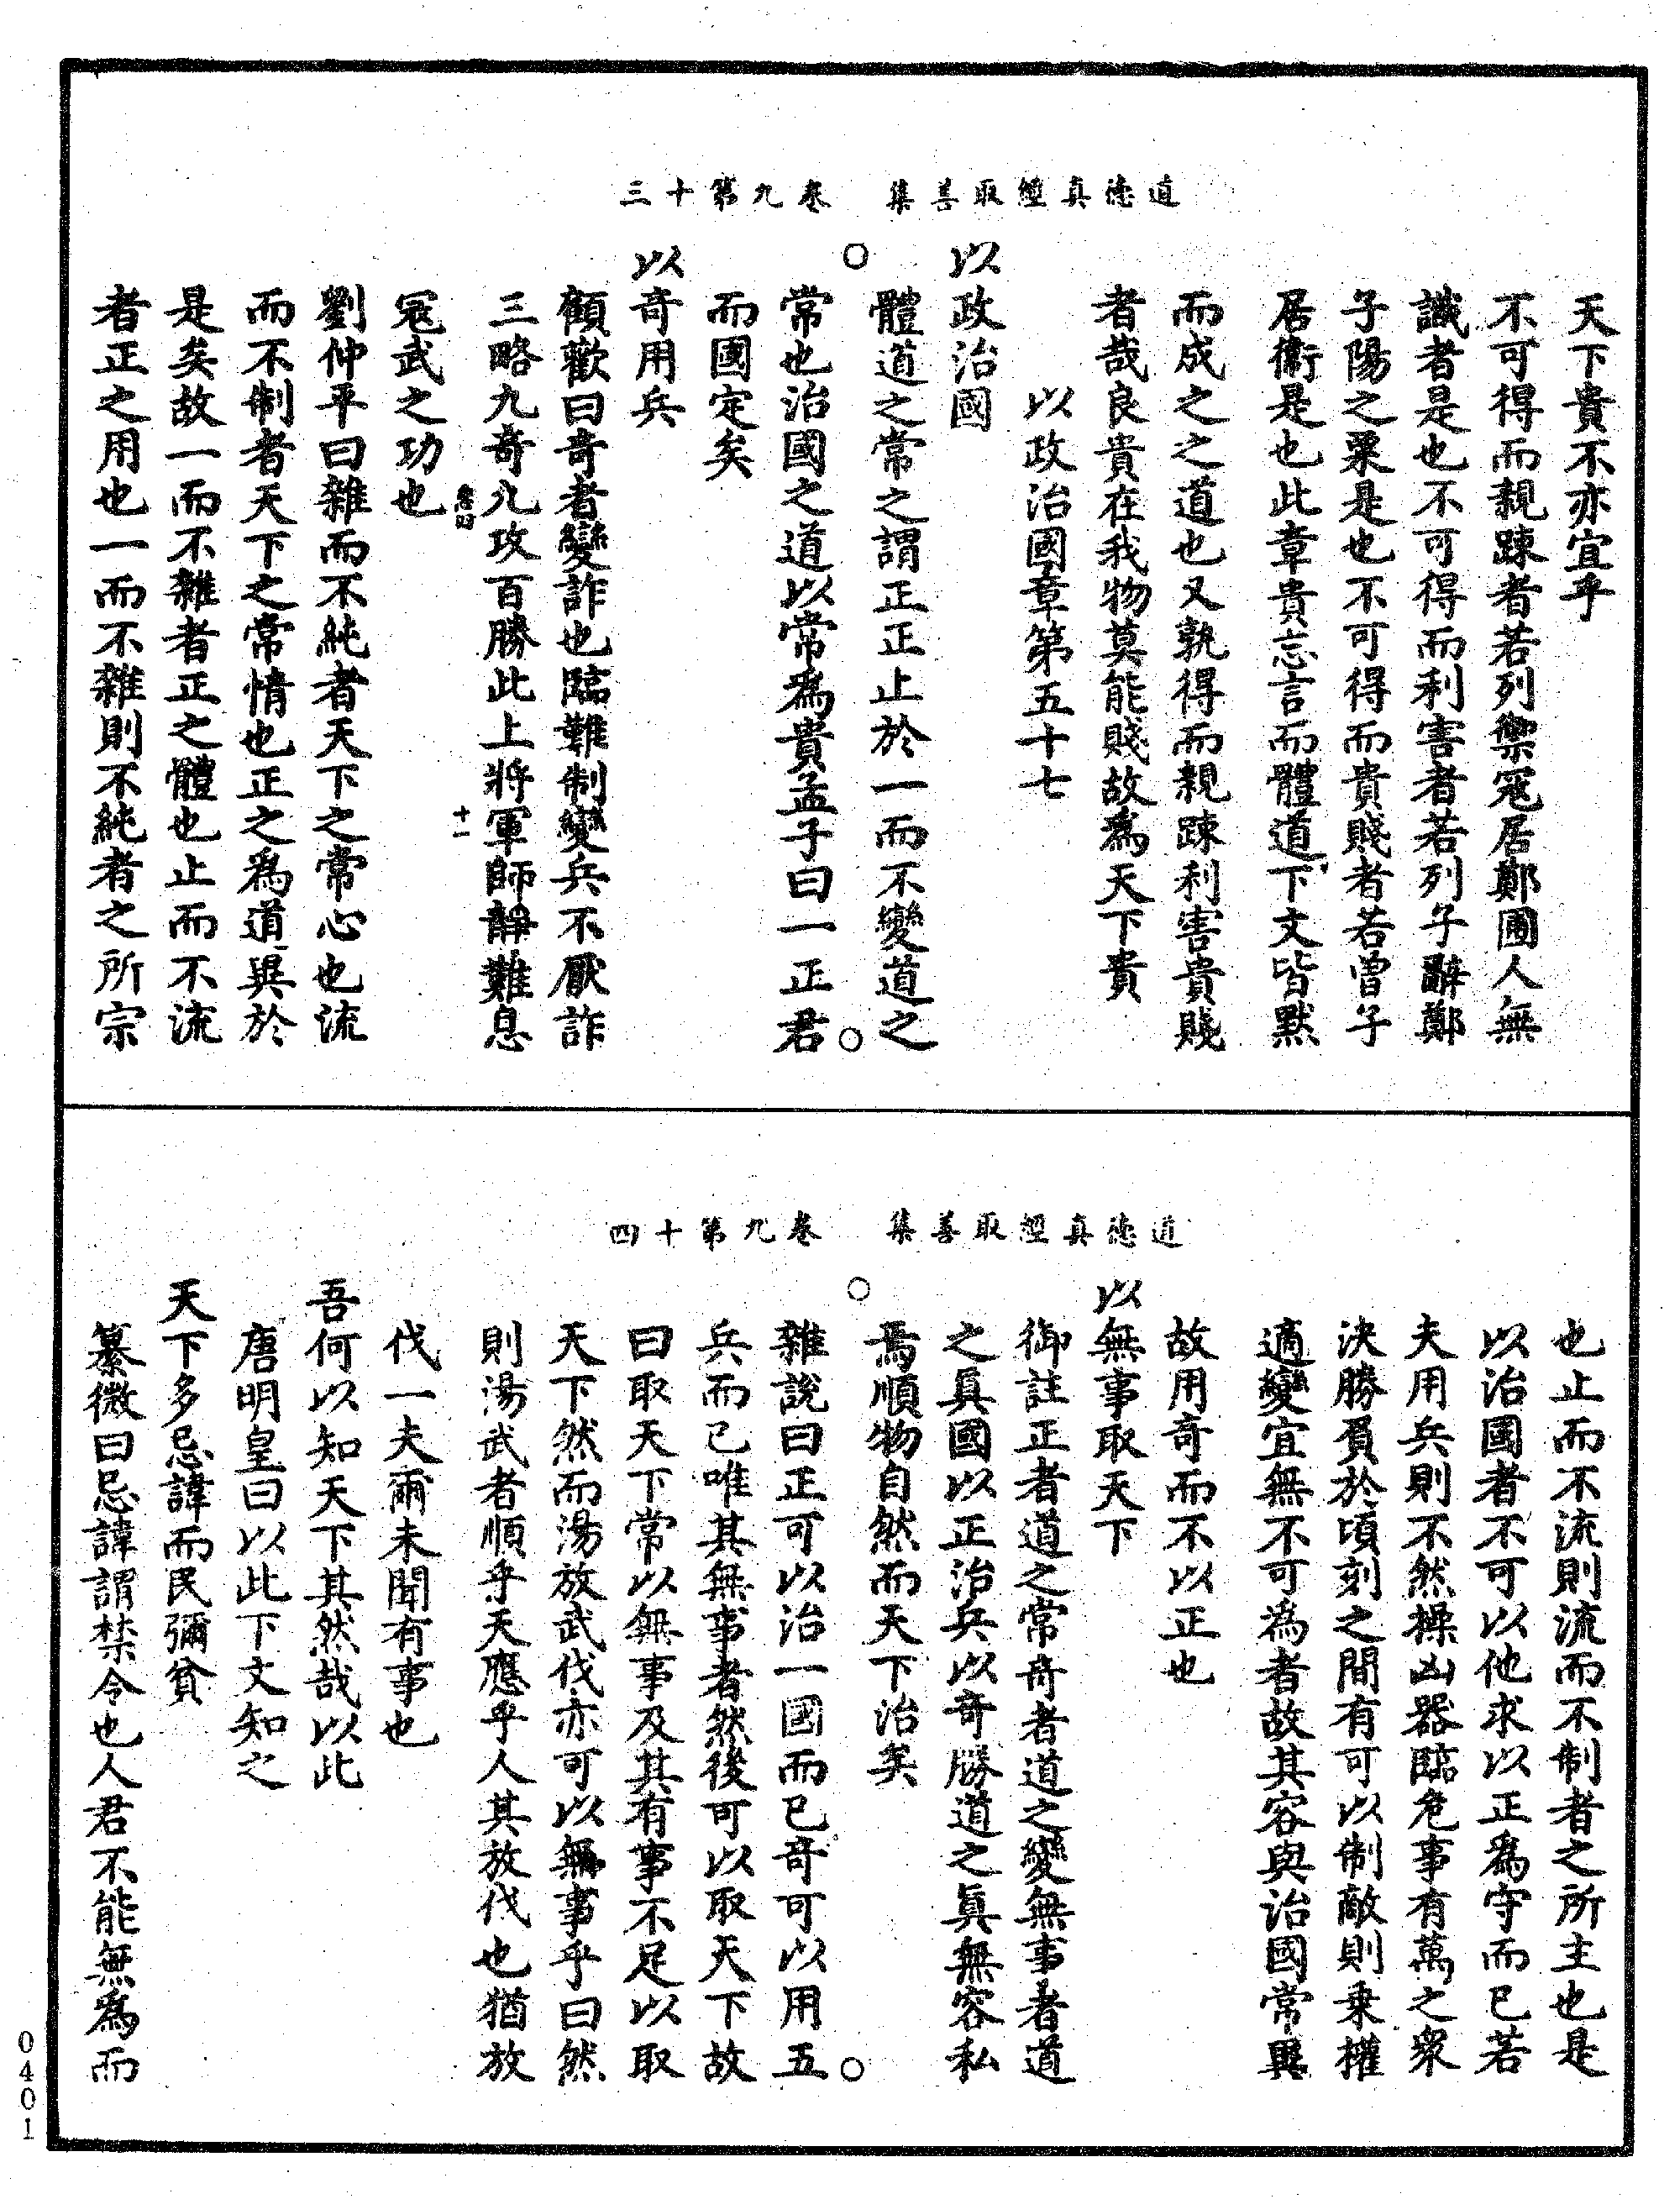 道德真經取善集　卷九第十三
天下貴不亦宜乎
不可得而親踈者若列禦冦居鄭圃人無
識者是也不可得而利害者若列子辭鄭
子陽之粟是也不可得而貴賤者若曾子
居衛是也此章貴忘言而體道下文皆默
而成之之道也又孰得而親踈利害貴賤
者哉良貴在我物莫能賤故爲天下貴
以政治國章第五十七
以政治國
體道之常之謂正正止於一而不變道之
常也治國之道以常爲貴孟子曰一正君
而國定矣
以奇用兵
顧歡曰奇者變詐也臨難制變兵不厭詐
三略九奇八攻百勝此上將軍師靜難息
十一
冦武之功也
劉仲平曰雜而不純者天下之常心也流
而不制者天下之常情也正之爲道異於
是矣故一而不雜者正之體也止而不流
者正之用也一而不雜則不純者之所宗
道德真經取善集　卷九第十四
也止而不流則流而不制者之所主也是
以治國者不可以他求以正爲守而已若
夫用兵則不然操凶器臨危事有萬之衆
決勝負於頃刻之間有可以制敵則乗權
適變宜無不可為者故其容與治國常異
故用奇而不以正也
以無事取天下
御註正者道之常奇者道之變無事者道
之真國以正治兵以奇勝道之真無容私
焉順物自然而天下治矣
雜說曰正可以治一國而已奇可以用五
兵而已唯其無事者然後可以取天下故
曰取天下常以無事及其有事不足以取
天下然而湯放武伐亦可以無事乎曰然
則湯武者順乎天應乎人其放伐也猶放
伐一夫爾未聞有事也
吾何以知天下其然哉以此
唐明皇曰以此下文知之
天下多忌諱而民彌貧
纂微曰忌諱謂禁令也人君不能無爲而
0401